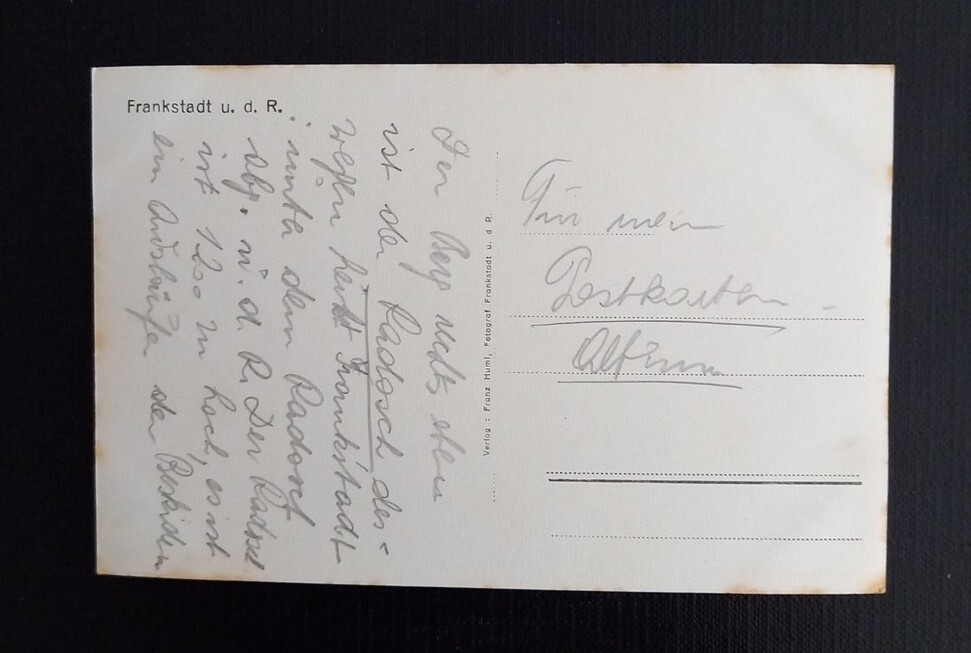 Frankstadt u. d. R.
Der Berg rechts oben
ist der Radosch des=
wegen heißt Frankstadt
unter dem Radosch
abg. u. d. R. Der Radosch
ist 1200 m hoch, es ist
ein Ausläufer der Beskiden
Verlag : Franz Huml, Fotograf Frankstadt u. d. R.
Für mein
Postkarten -
Album